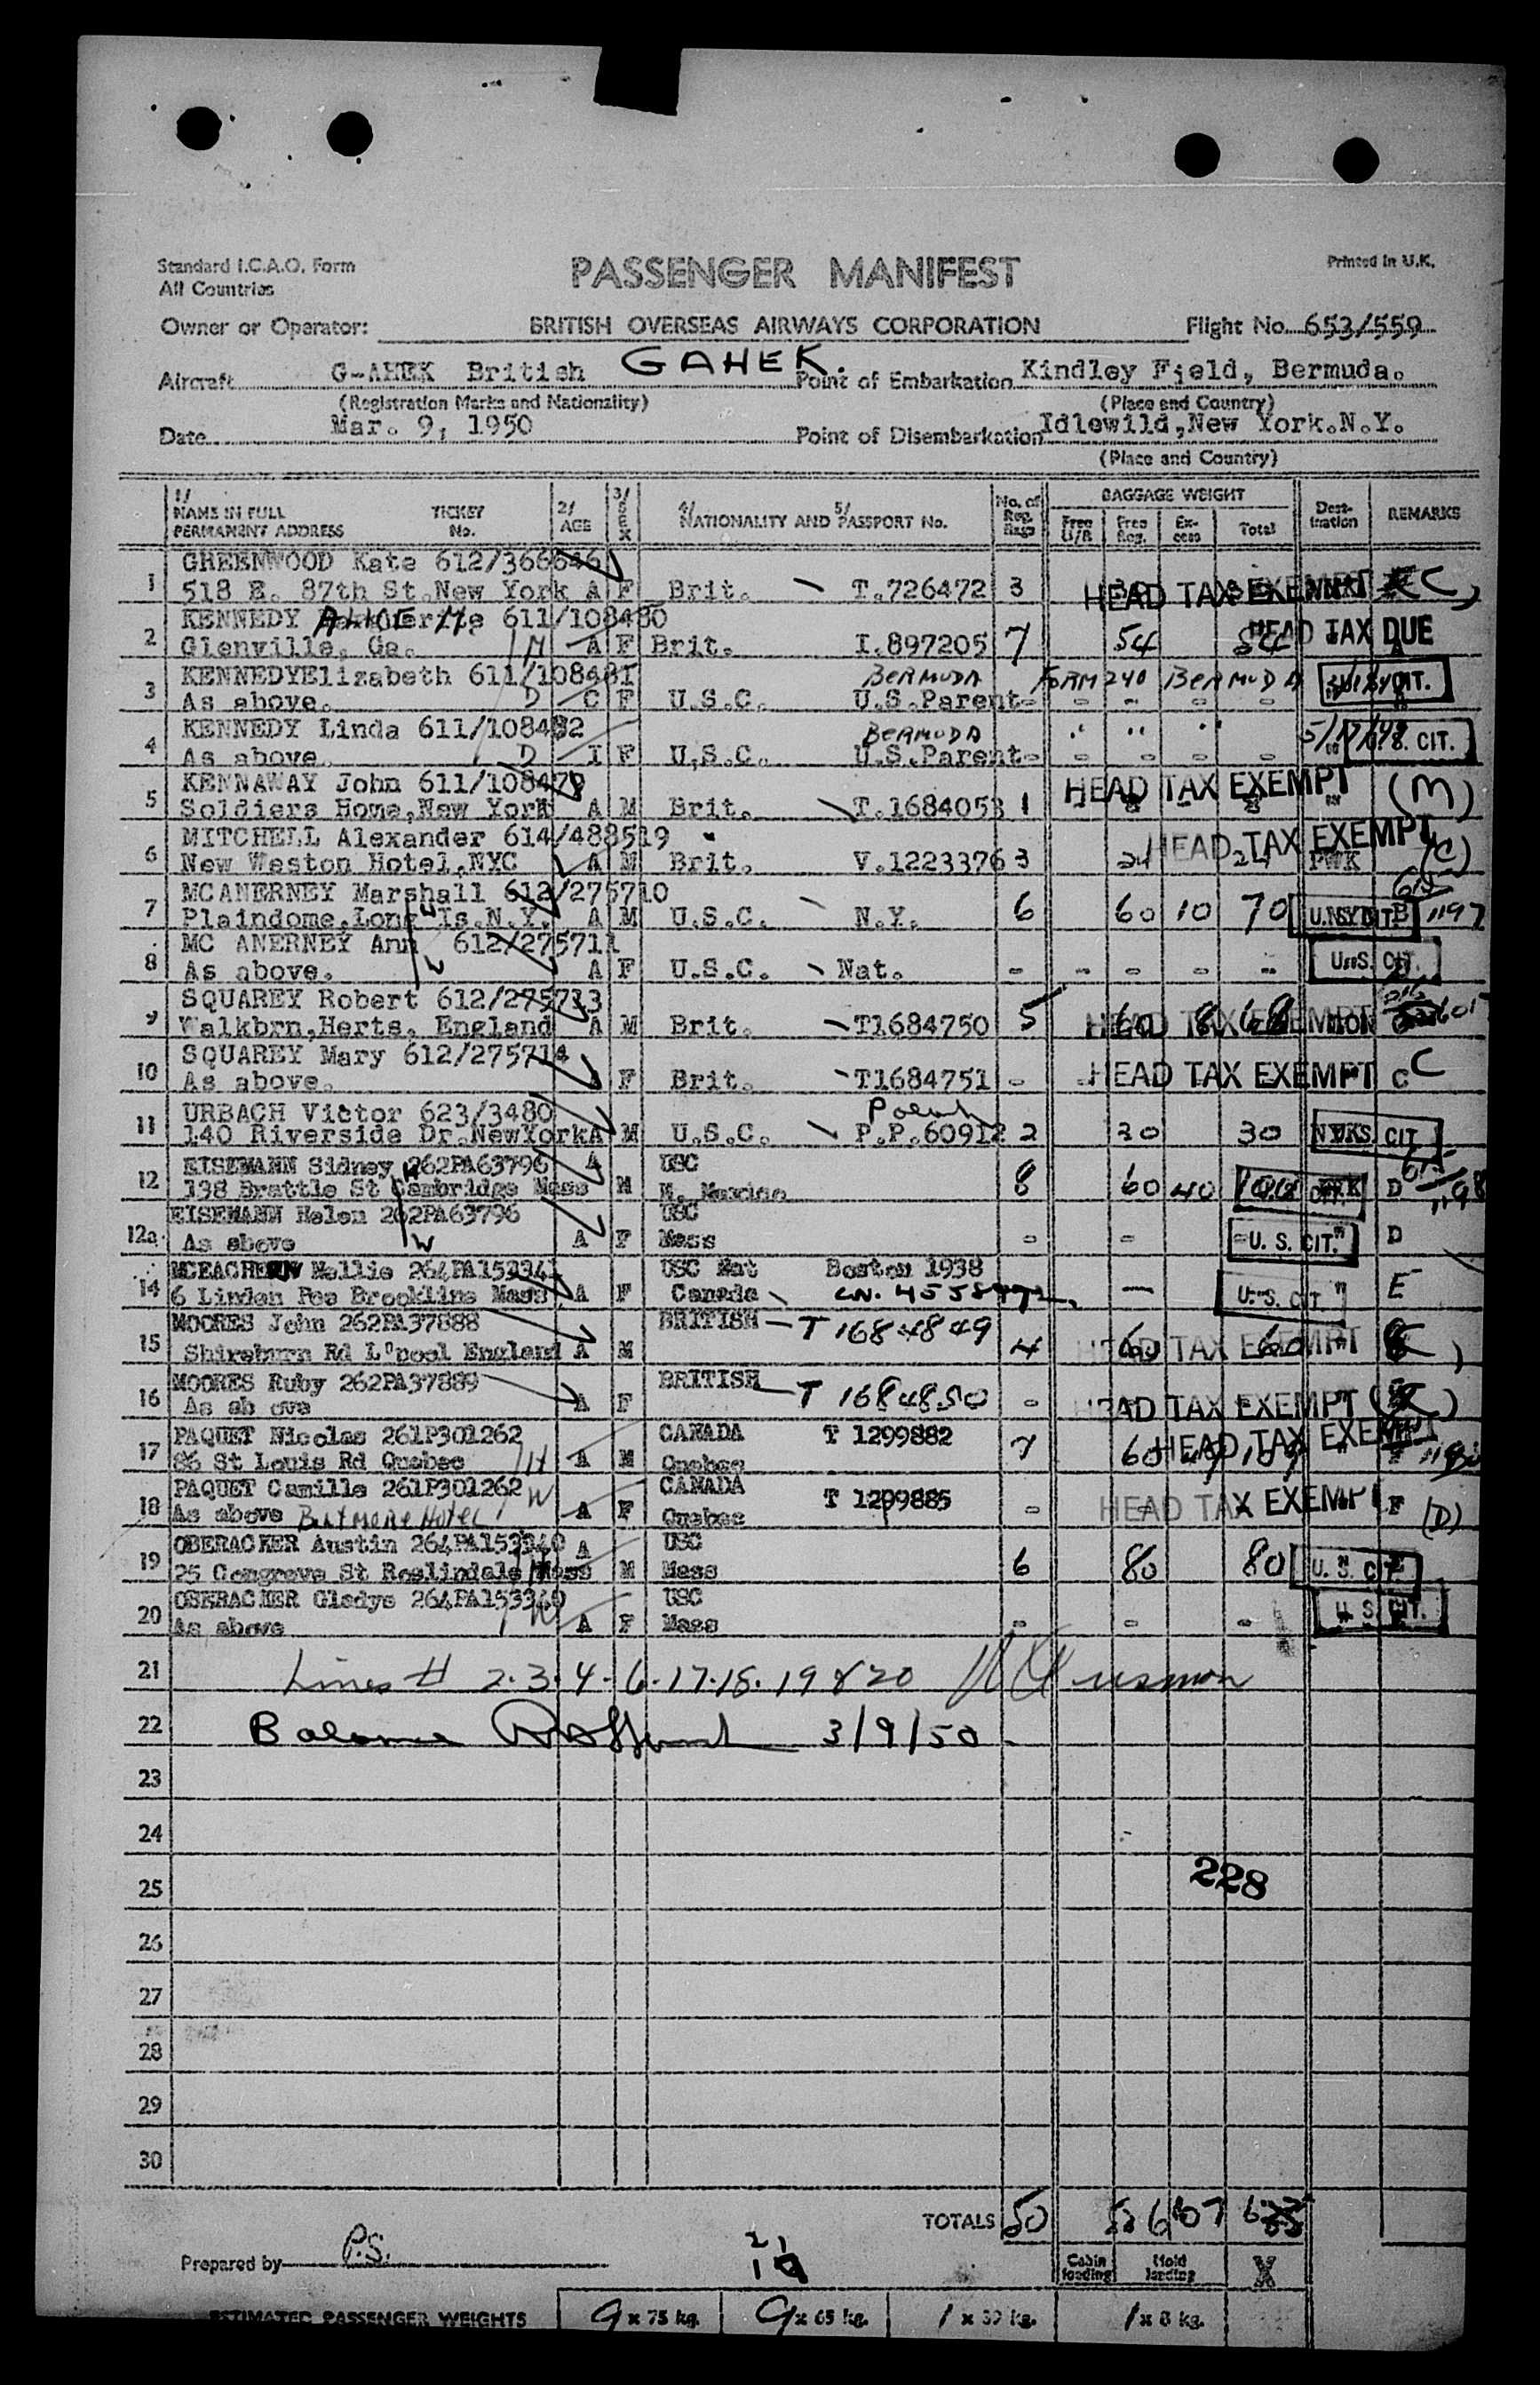 Standard I.C.A.O. Form
All Countries
PASSENGER MANIFEST
Printed in U.K.
Owner or Operator: BRITISH OVERSEAS AIRWAYS CORPORATION Flight No. 653/559
Aircraft G-AHEK British GAHEK. Point of Embarkation Kindley Field, Bermuda.
(Registration Marks and Nationality) (Place and Country)
Date Mar. 9, 1950 Point of Disembarkation Idlewild,New York.N.Y.
(Place and Country)
1/ NAME IN FULL PERMANENT ADDRESS TICKET No. 2/ AGE 3/ SEX 4/ NATIONALITY AND 5/ PASSPORT No. No. of Reg. Bags BAGGAGE WEIGHT Free U/R Free Reg. Excess Total Destination REMARKS
GREENWOOD Kate 612/366646
1 518 E. 87th St.New York A F Brit. T.726472 3 HEAD TAX EXEMPT
KENNEDY ALICE M. 611/108480
2 Glenville, Ga. M A F Brit. I.897205 7 54 54 HEAD TAX DUE
KENNEDYElizabeth 611/108481 BERMUDA FORM 240 BERMUDA
3 As above. D C F U.S.C. U.S.Parent - - - - - CIT.
KENNEDY Linda 611/108482 BERMUDA " " "
4 As above. D I F U.S.C. U.S.Parent - - - - - U.S. CIT.
KENNAWAY John 611/108479
5 Soldiers Home,New York A M Brit. T.1684053 1 HEAD TAX EXEMPT (M)
MITCHELL Alexander 614/488519
6 New Weston Hotel,NYC A M Brit. V.1223376 3 24 24 HEAD TAX EXEMPT PWK (C)
MCANERNEY Marshall 612/275710
7 Plaindome,Long Is.N.Y. A M U.S.C. N.Y. 6 60 10 70 B 1197
MC ANERNEY Ann 612/275711
8 As above. W A F U.S.C. Nat. - - - - - U.S. CIT.
SQUAREY Robert 612/275713
9 Walkbrn,Herts. England A M Brit. T1684750 5 60 8 68 HEAD TAX EXEMPT
SQUAREY Mary 612/275714
10 As above. F Brit. T1684751 - HEAD TAX EXEMPT C C
URBACH Victor 623/3480
11 140 Riverside Dr.NewYork A M U.S.C. P.P.60912 2 30 30 CIT.
EISEMANN Sidney 262PA63796 A USC
12 198 Brattle St Cambridge Mass M N. Mexico 8 60 40 100 D
EISEMANN Helen 262PA63796 USC
12a. As above W A F Mass - - U. S. CIT. D
MCEACHERN Mellie 264PA153341 USC Nat Boston 1938
14 6 Linden Brookline Mass A F Canada - U.S. CIT. " E
MOORES John 262PA37888 BRITISH T 1684849
15 Shireburn Rd L'pool England A M 4 60 60 HEAD TAX EXEMPT
MOORES Ruby 262PA37889 BRITISH T 1684850
16 As ab ove A F - HEAD TAX EXEMPT
PAQUET Nicolas 261P301262 CANADA T 1299882
17 86 St Louis Rd Quebec H A M Quebec 7 60 HEAD TAX EXEMPT
PAQUET Camille 261P301262 W CANADA T 1299885
18 As above A F Quebec - HEAD TAX EXEMPT F (D)
OBERACKER Austin 264PA153340 A USC
19 25 Congreve St Roslindale Mass M Mass 6 80 80 U. S. CIT.
OBERACKER Gladys 264PA153340 USC
20 As above W A F Mass - - - U. S. CIT.
21 Lines # 2.3.4-6.17.18.19 & 20
22 Balance 3/9/50
23
24
25 228
26
27
28
29
30
TOTALS 50
Prepared by P.S. 21 19 Cabin loading Hold loading X
ESTIMATED PASSENGER WEIGHTS 9 x 75 kg. 9 x 65 kg. 1 x 39 kg. 1 x 8 kg.